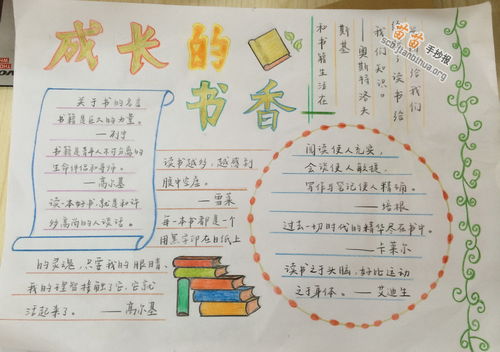 成长的
书香
和书籍生活在
斯基
——奥斯特洛夫
我们知识。
了读书给
给我们
苗苗手抄报
scb.jianbihua.org
关于书的名言
书籍是巨人的力量。
——列宁
书籍是青年人不可分离的
生命伴侣和导师。
——高尔基
读一本好书,就是和许
多高尚的人谈话。
读书越多,越感到
腹中空虚。
——雪莱
每一本书都是一个
用黑字印在白纸上
的灵魂,只要我的眼睛、
我的理智接触了它,它就
活起来了。——高尔基
阅读使人充实,
会谈使人敏捷,
写作与笔记使人精确。
——培根
过去一切时代的精华尽在书中。
——卡莱尔
读书之于头脑,好比运动
之于身体。——艾迪生